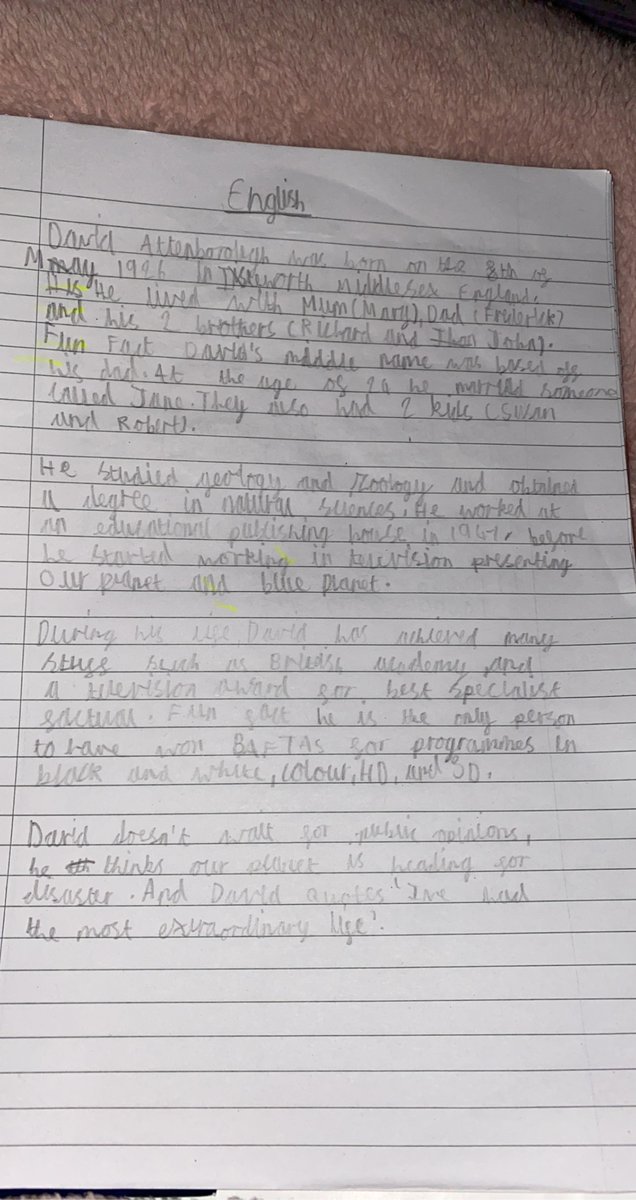 English
David Attenborough was born on the 8th of
May 1926 in Isleworth Middlesex England.
He lived with Mum (Mary), Dad (Frederick)
and his 2 brothers (Richard and John).
Fun Fact David's middle name was based of
his dad. At the age of 24 he married someone
called Jane. They also had 2 kids (Susan
and Robert).
He studied geology and Zoology and obtained
a degree in natural sciences. He worked at
an educational publishing house in 1947, before
he started working in television presenting
Our planet and blue planet.
During his life David has achieved many
stuff such as British academy and
a television award for best specialist
factual. Fun fact he is the only person
to have won BAFTAs for programmes in
black and white, colour, HD, and 3D.
David doesn't wait for public opinions,
he thinks our planet is heading for
disaster. And David quotes 'I've had
the most extraordinary life'.